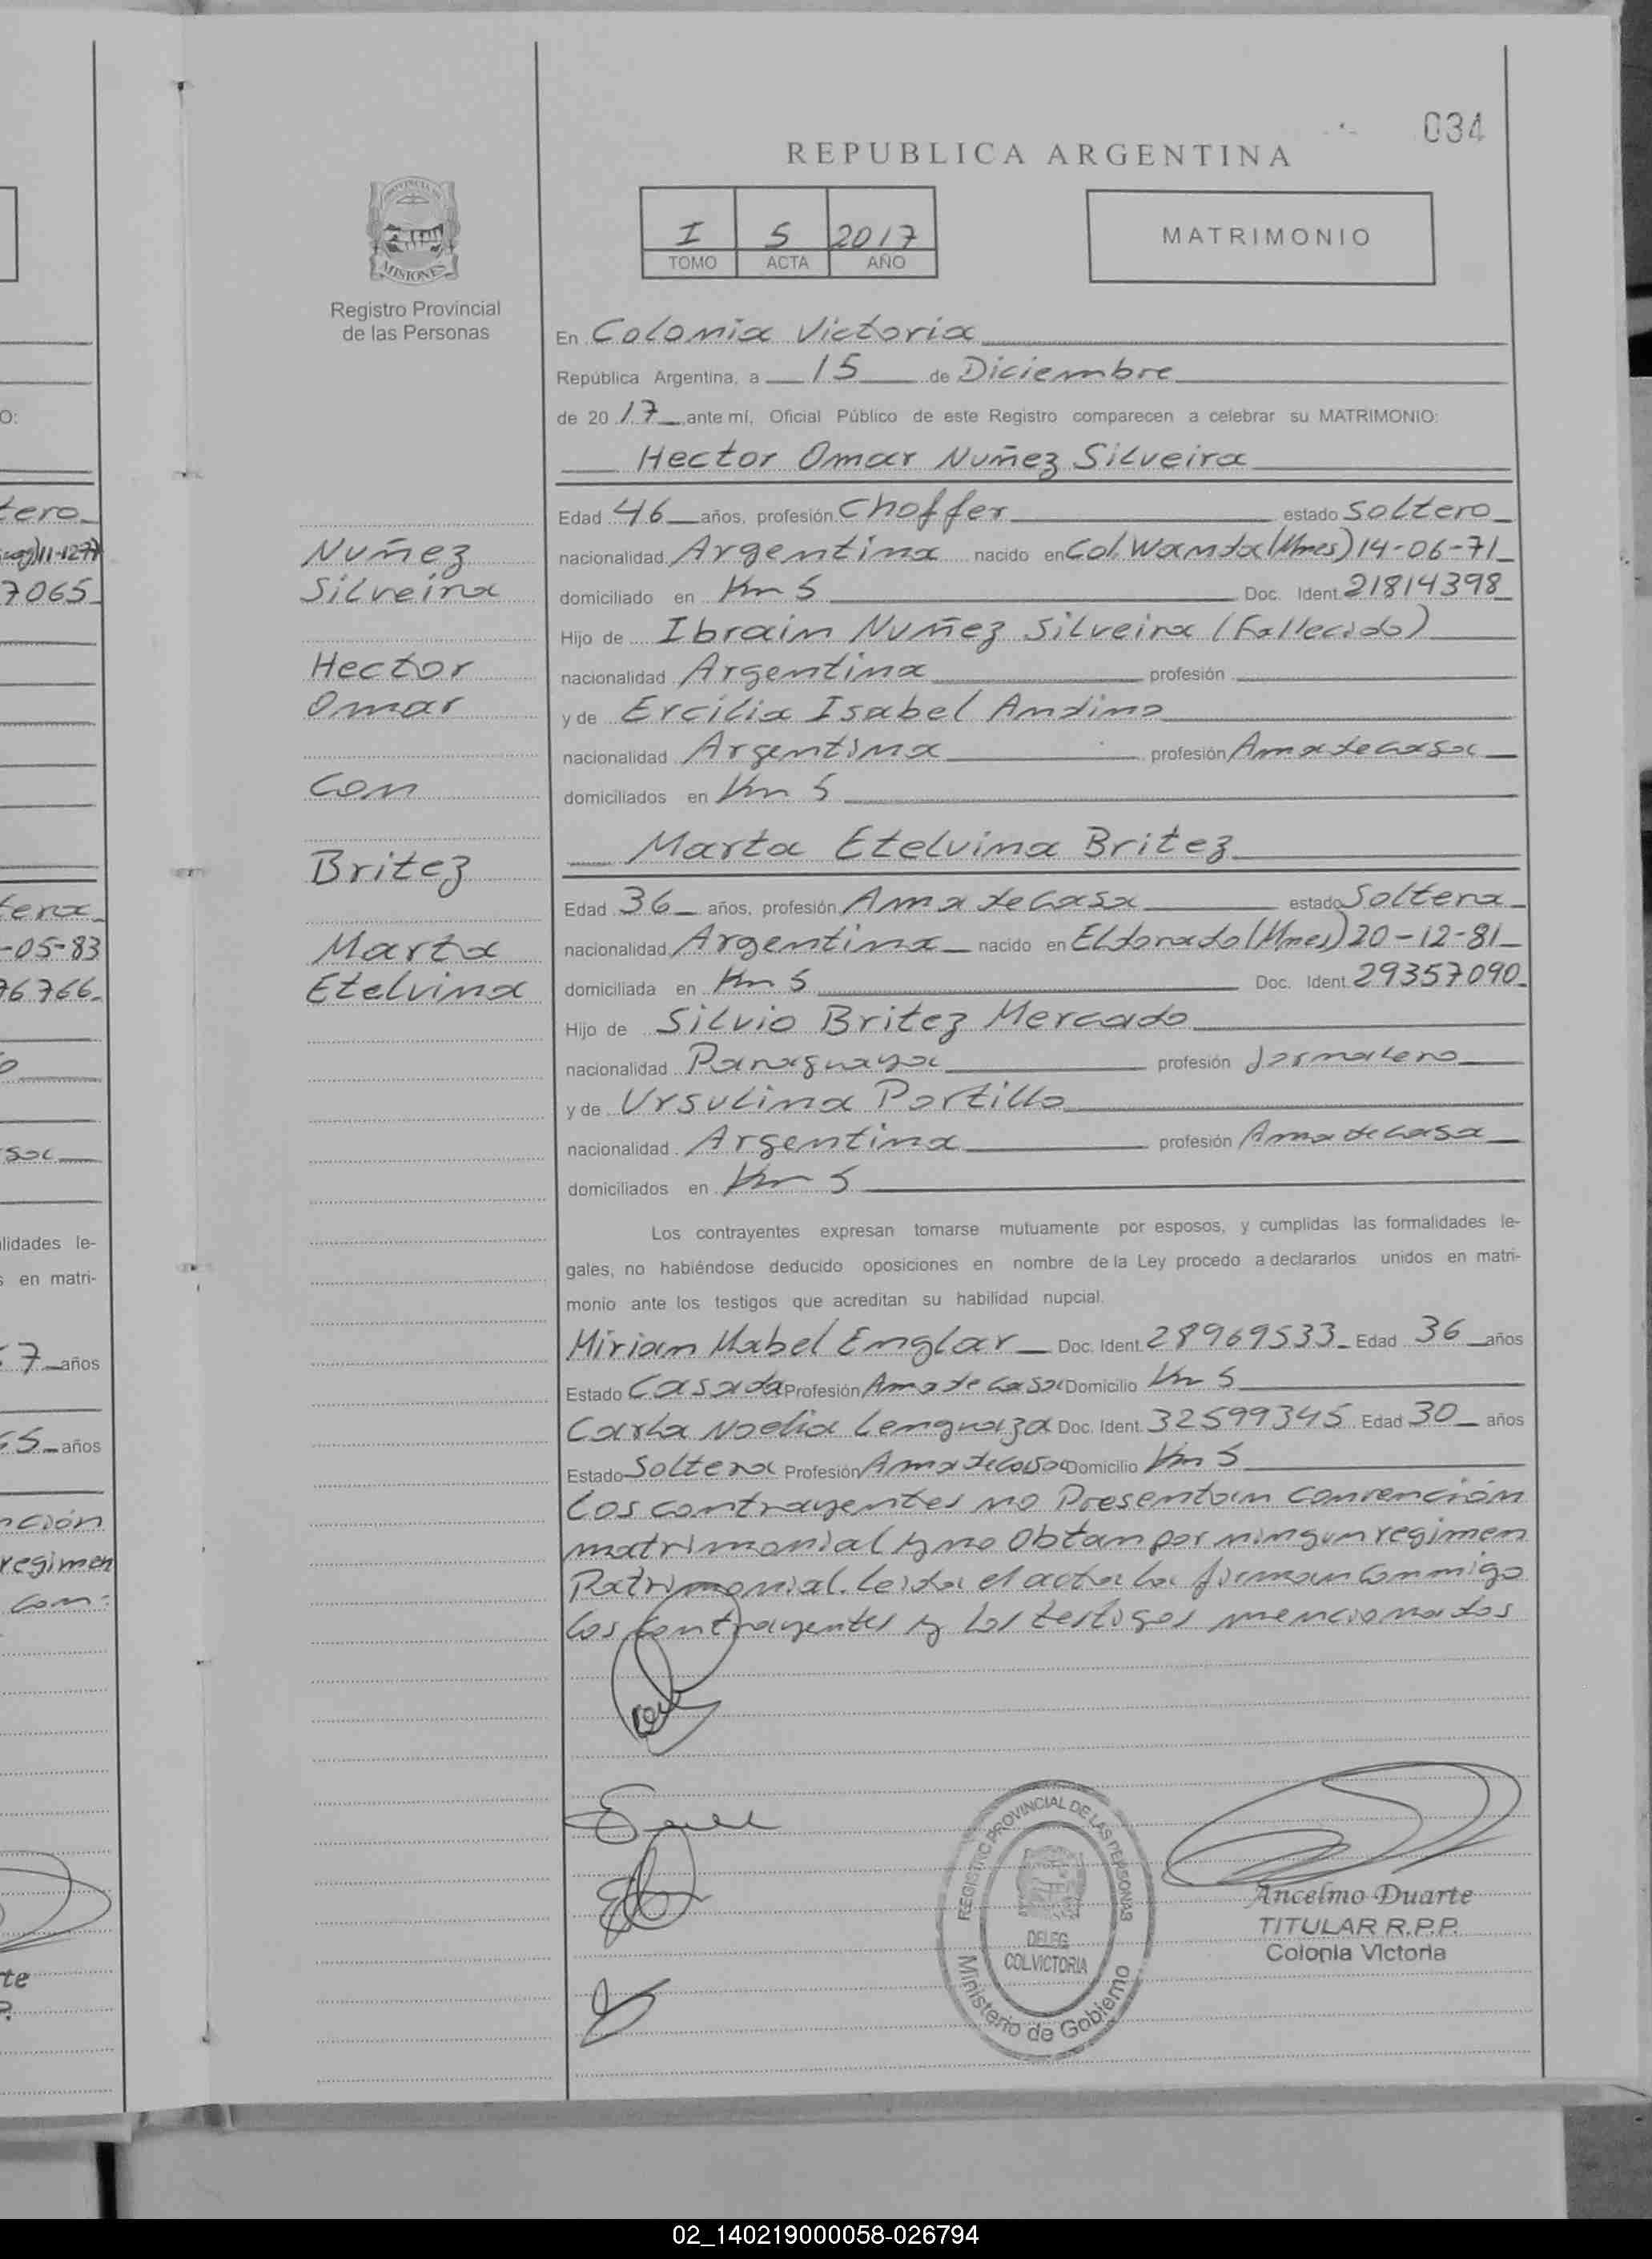 034
REPUBLICA ARGENTINA
PROVINCIA DE
MISIONES
Registro Provincial
de las Personas
I 5 2017
TOMO ACTA AÑO
MATRIMONIO
En Colonia Victoria
República Argentina, a 15 de Diciembre
de 20 17 ante mí, Oficial Público de este Registro comparecen a celebrar su MATRIMONIO:
Hector Omar Nuñez Silveira
Edad 46 años, profesión Choffer estado Soltero
nacionalidad Argentina nacido en Col. Wanda (Mnes) 14-06-71
domiciliado en Km 5 Doc. Ident. 21814398
Hijo de Ibrain Nuñez Silveira (Fallecido)
nacionalidad Argentina profesión
y de Ercilia Isabel Andino
nacionalidad Argentina profesión Ama de casa
domiciliados en Km 5
Marta Etelvina Britez
Edad 36 años, profesión Ama de Casa estado Soltera
nacionalidad Argentina nacido en Eldorado (Mnes) 20-12-81
domiciliada en Km 5 Doc. Ident. 29357090
Hijo de Silvio Britez Mercado
nacionalidad Paraguaya profesión Jornalero
y de Ursulina Portillo
nacionalidad Argentina profesión Ama de Casa
domiciliados en Km 5
Los contrayentes expresan tomarse mutuamente por esposos, y cumplidas las formalidades le-
gales, no habiéndose deducido oposiciones en nombre de la Ley procedo a declararlos unidos en matri-
monio ante los testigos que acreditan su habilidad nupcial.
Mirian Mabel Englar Doc. Ident. 28969533 Edad 36 años
Estado Casada Profesión Ama de Casa Domicilio Km 5
Carla Noelia Lenguaza Doc. Ident. 32599345 Edad 30 años
Estado Soltera Profesión Ama de Casa Domicilio Km 5
Los contrayentes no Presentan convención
matrimonial y no Obtan por ningun regimen
Patrimonial. Leida el acta la firman Conmigo
los contrayentes y los testigos mencionados
Nuñez
Silveira
Hector
Omar
Con
Britez
Marta
Etelvina
REGISTRO PROVINCIAL DE LAS PERSONAS
DELEG.
COL.VICTORIA
Ministerio de Gobierno
Ancelmo Duarte
TITULAR R.P.P.
Colonia Victoria
O:
tero
11-12-77
7065
tera
-05-83
76766
sa
alidades le-
s en matri-
7 años
5 años
nción
regimen
Con:
te
P.
02_140219000058-026794